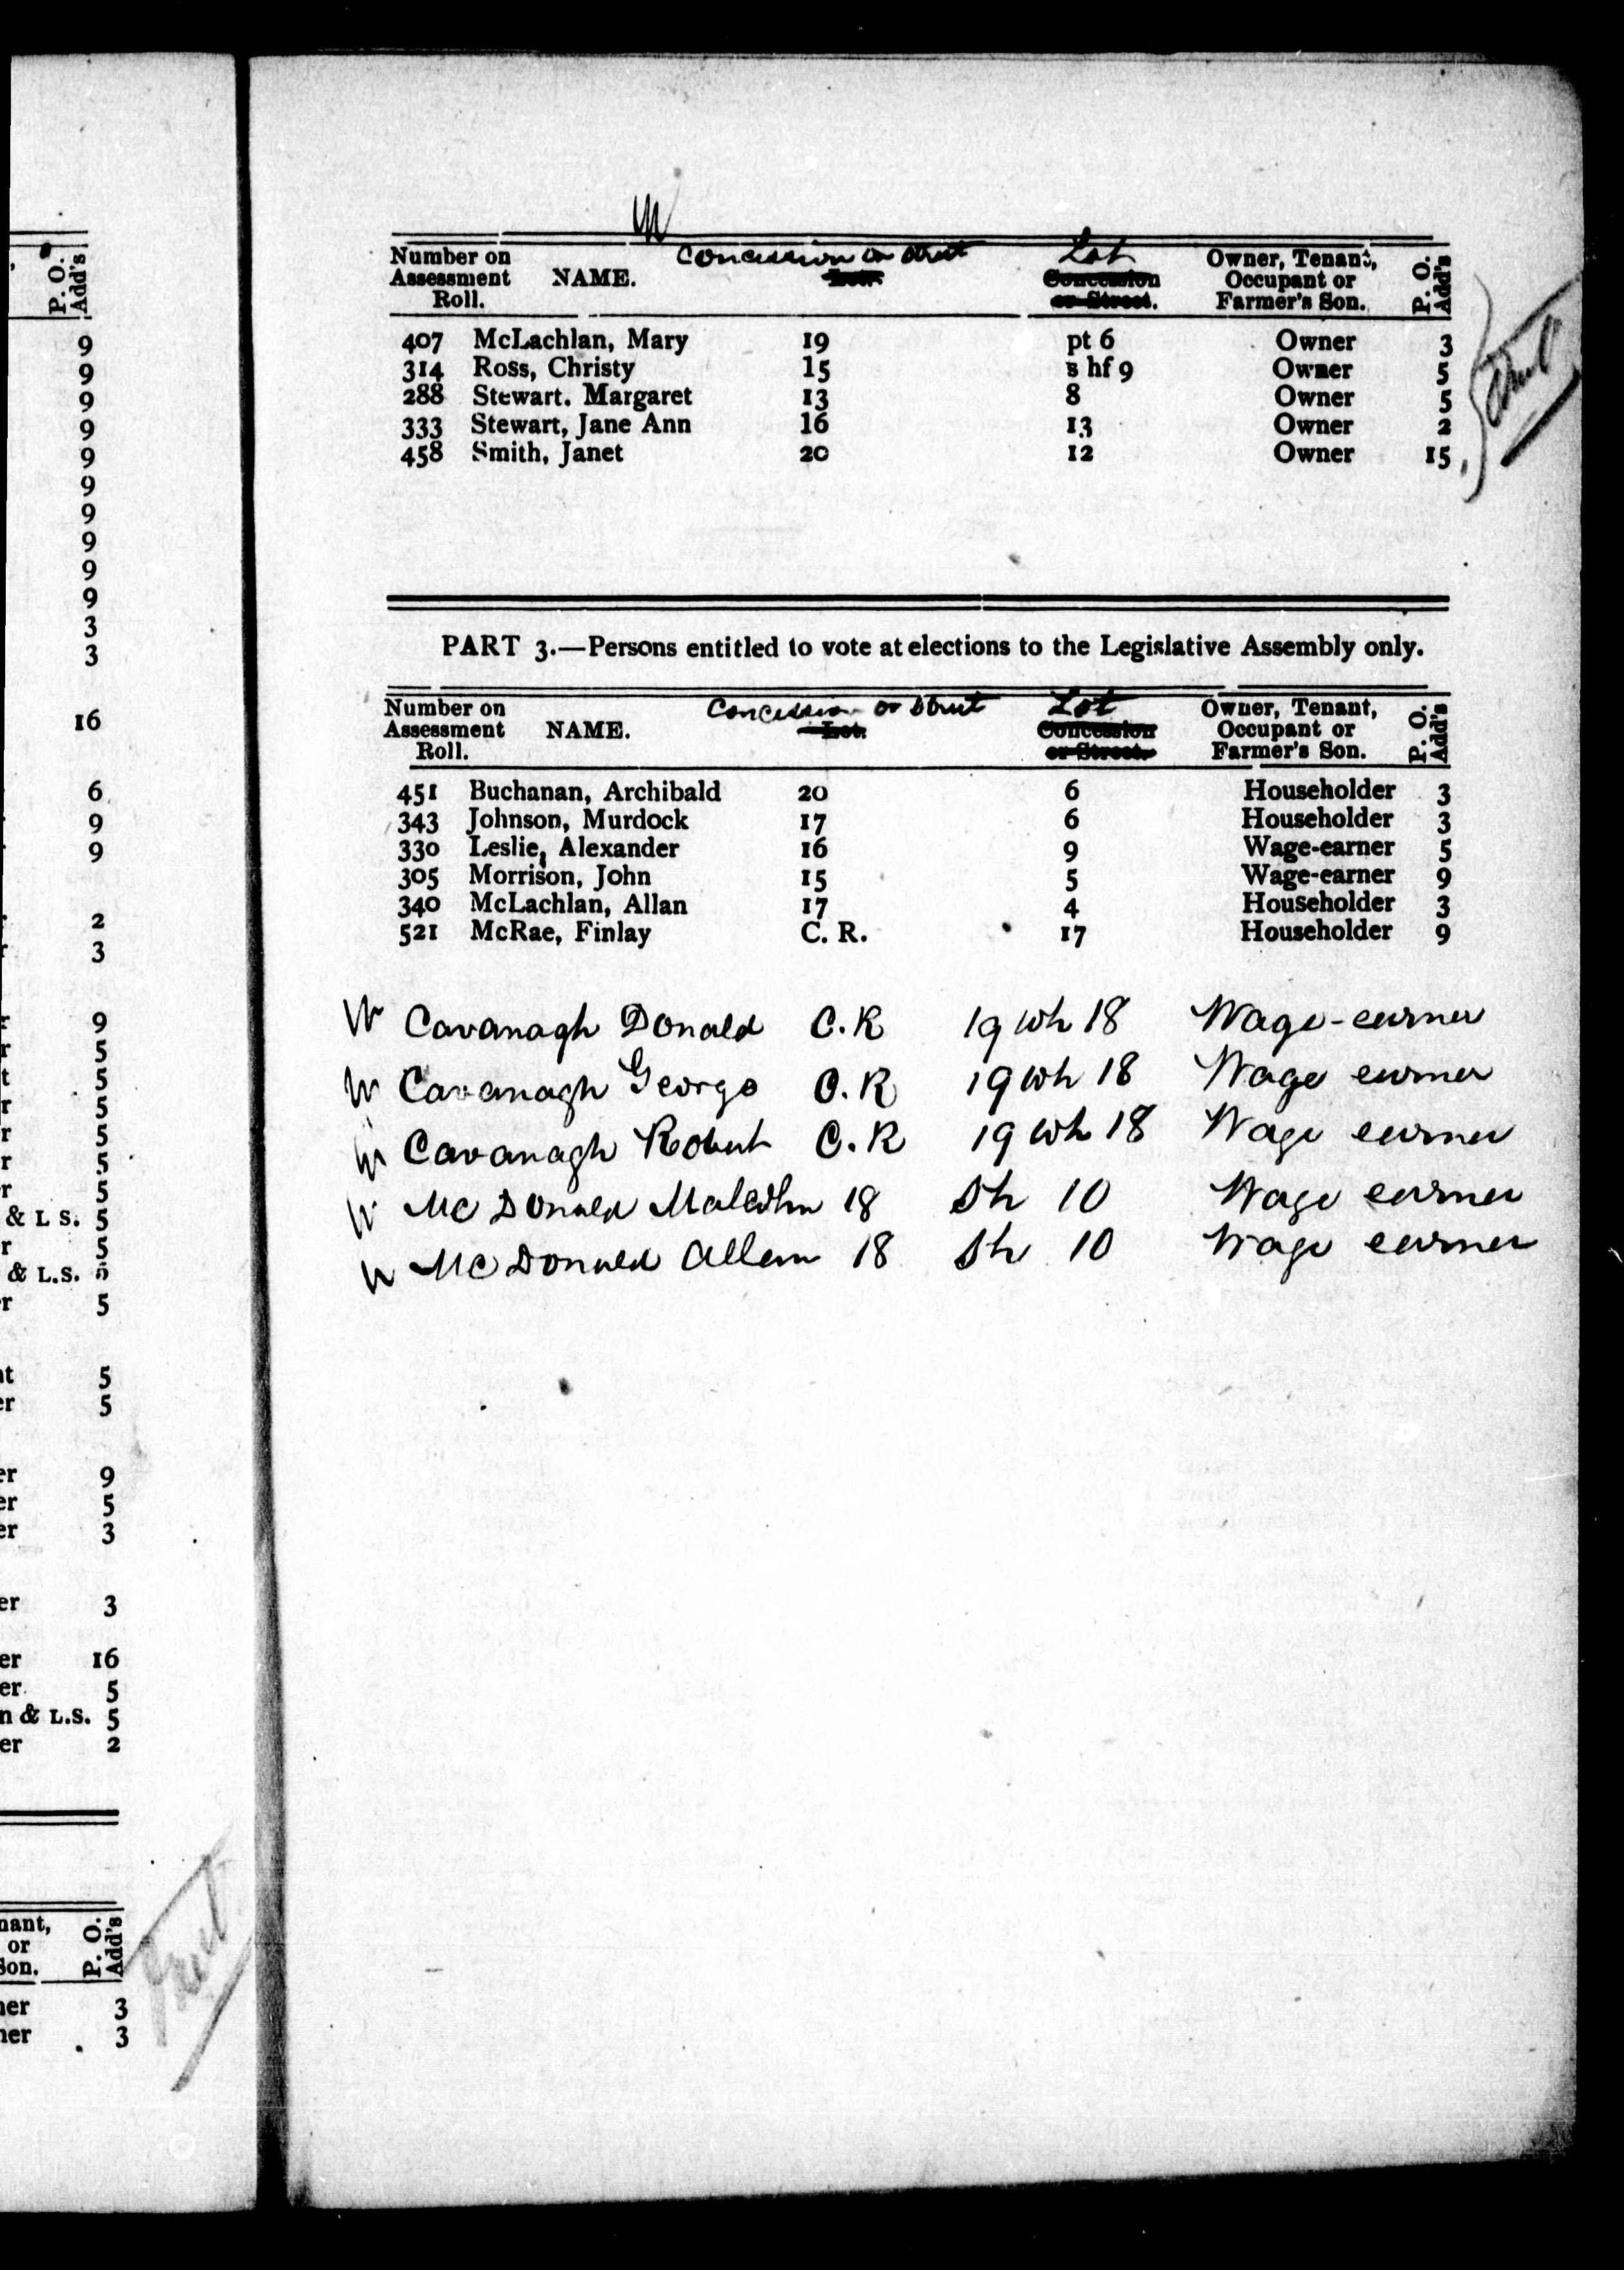 P. O. Add's
9
9
9
9
9
9
9
9
9
9
3
3
16
6
9
9
2
3
9
5
5
5
5
5
5
& L S. 5
5
& L.S. 5
5
5
5
9
5
3
3
16
5
& L.S. 5
2
P. O. Add's
3
3
Concession or Street Lot
Number on Assessment Roll. NAME. Lot. Concession or Street. Owner, Tenant, Occupant or Farmer's Son. P. O. Add's
407 McLachlan, Mary 19 pt 6 Owner 3
314 Ross, Christy 15 s hf 9 Owner 5
288 Stewart. Margaret 13 8 Owner 5
333 Stewart, Jane Ann 16 13 Owner 2
458 Smith, Janet 20 12 Owner 15
PART 3.—Persons entitled to vote at elections to the Legislative Assembly only.
Concession or Street Lot
Number on Assessment Roll. NAME. Lot. Concession or Street. Owner, Tenant, Occupant or Farmer's Son. P. O. Add's
451 Buchanan, Archibald 20 6 Householder 3
343 Johnson, Murdock 17 6 Householder 3
330 Leslie, Alexander 16 9 Wage-earner 5
305 Morrison, John 15 5 Wage-earner 9
340 McLachlan, Allan 17 4 Householder 3
521 McRae, Finlay C. R. 17 Householder 9
Cavanagh Donald C.R 19 wh 18 Wage-earner
Cavanagh George C.R 19 wh 18 Wage earner
Cavanagh Robert C.R 19 wh 18 Wage earner
McDonald Malcolm 18 Sh 10 Wage earner
McDonald Allan 18 Sh 10 Wage earner